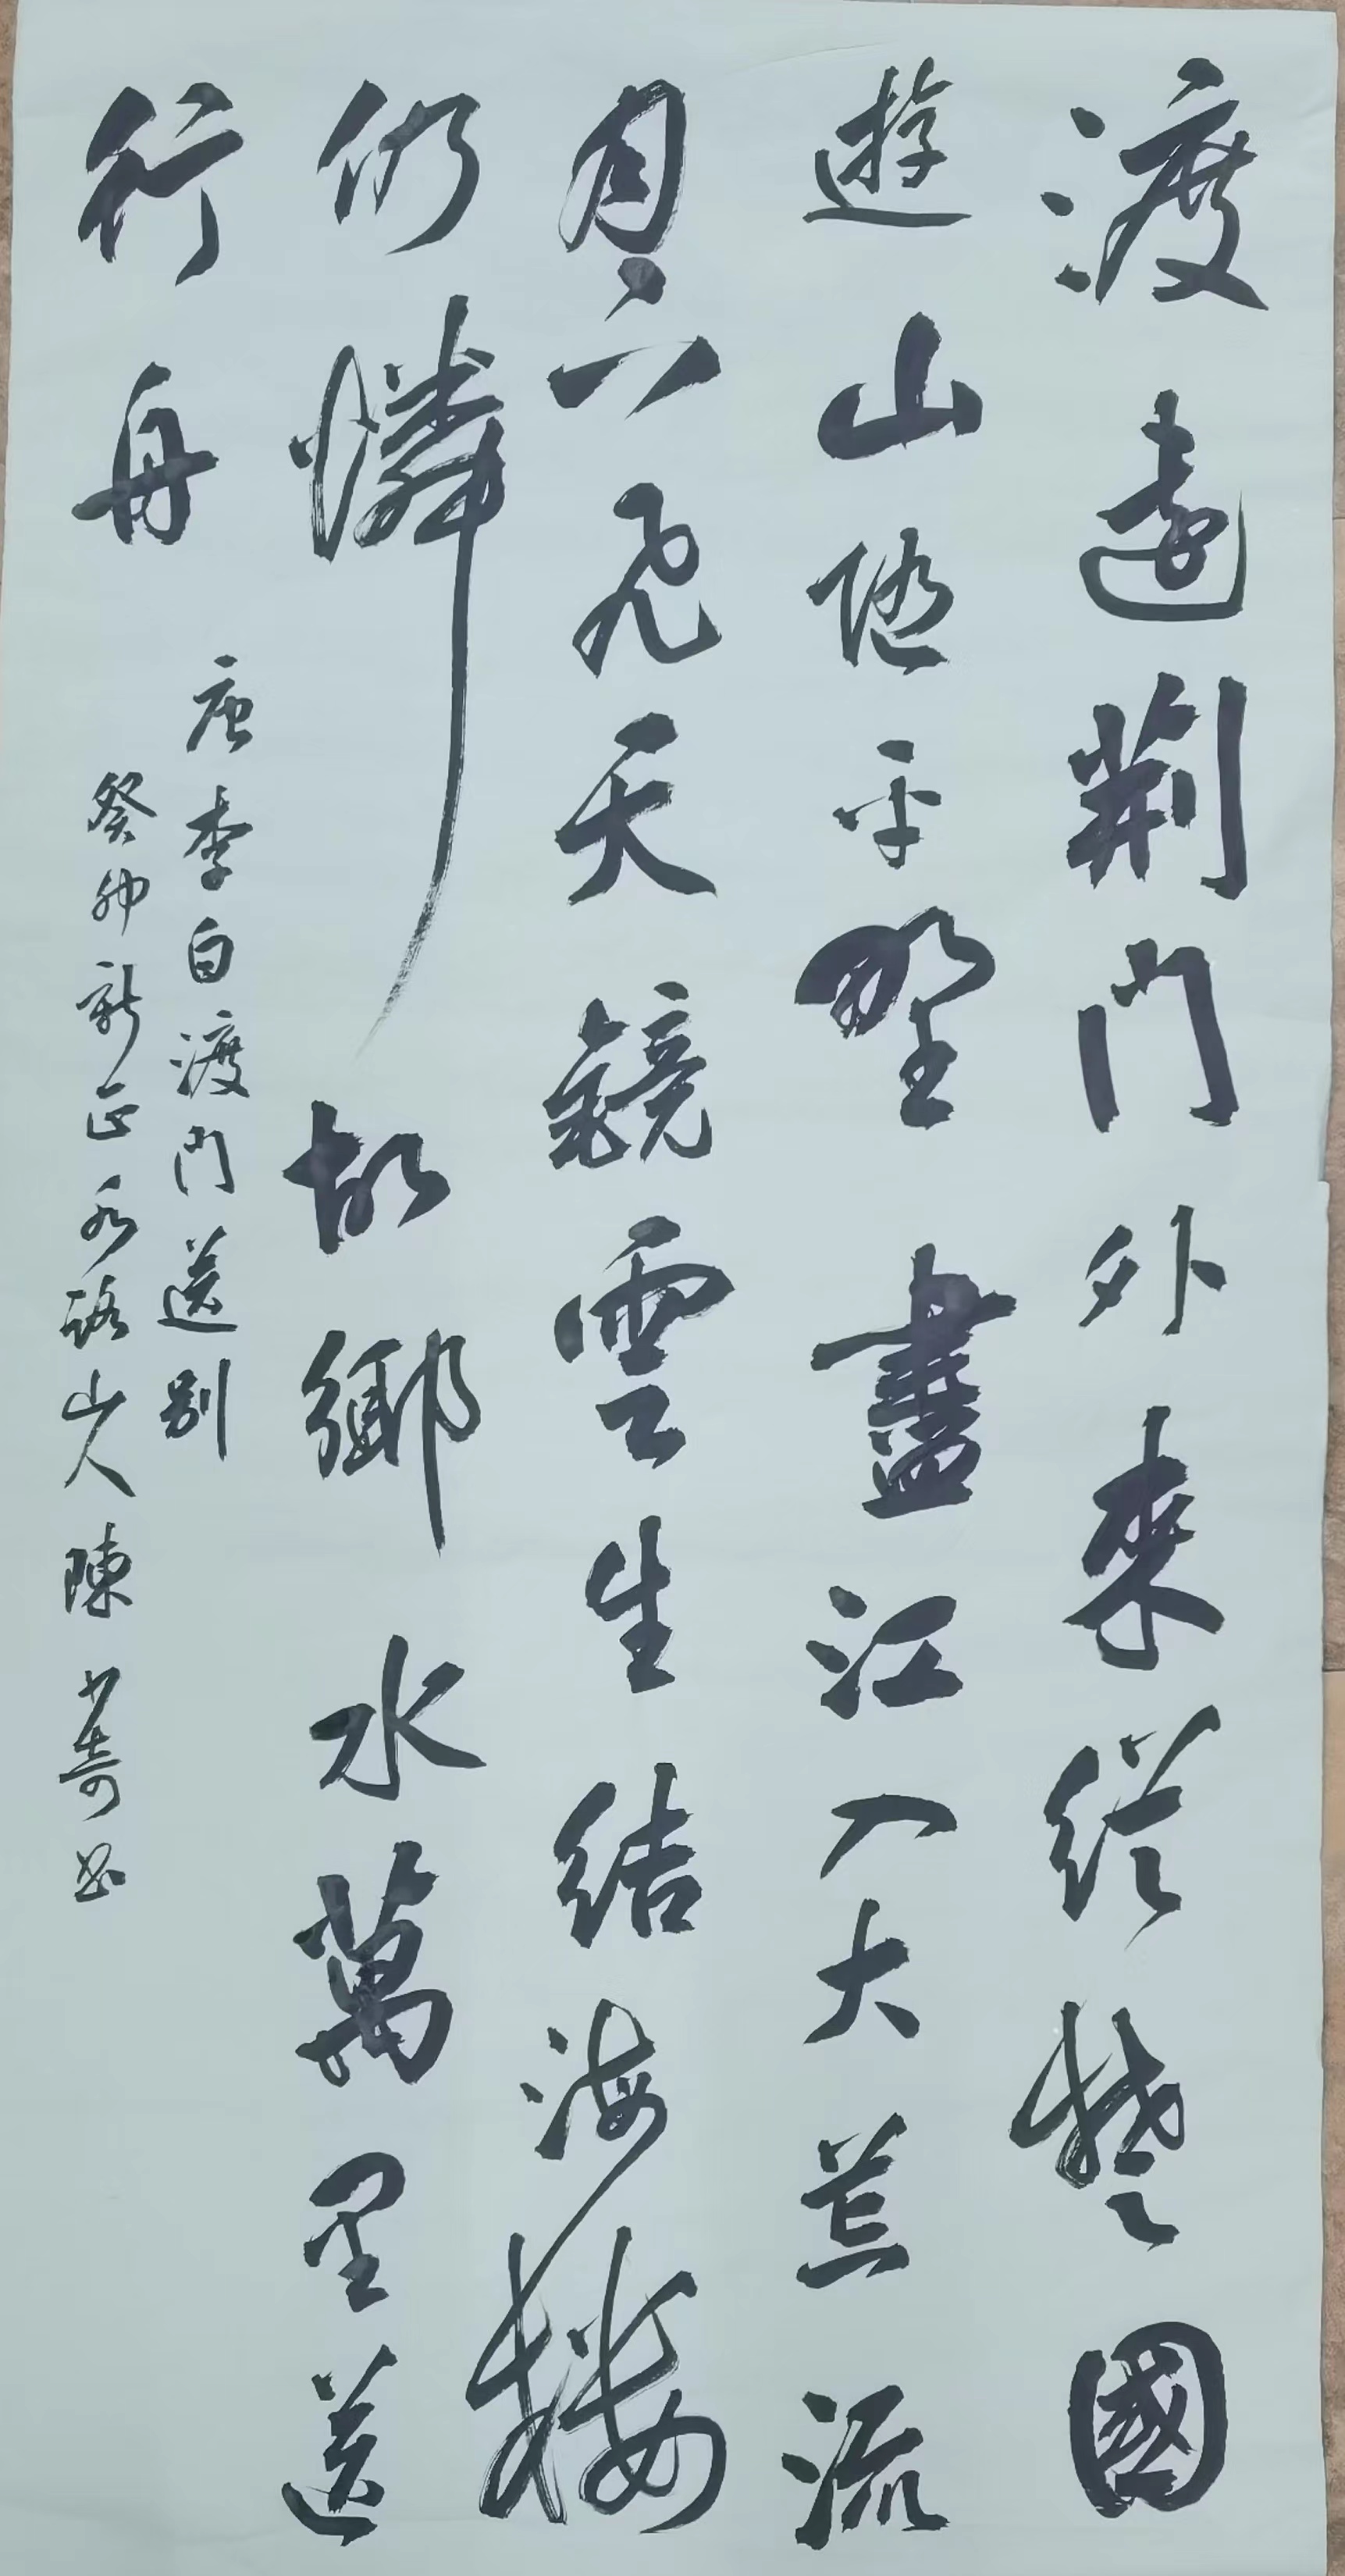 渡遠荊門外來從楚國
遊山隨平野盡江入大荒流
月下飛天鏡雲生結海樓
仍憐故鄉水萬里送
行舟
唐李白渡門送別
癸卯新正 山人陳